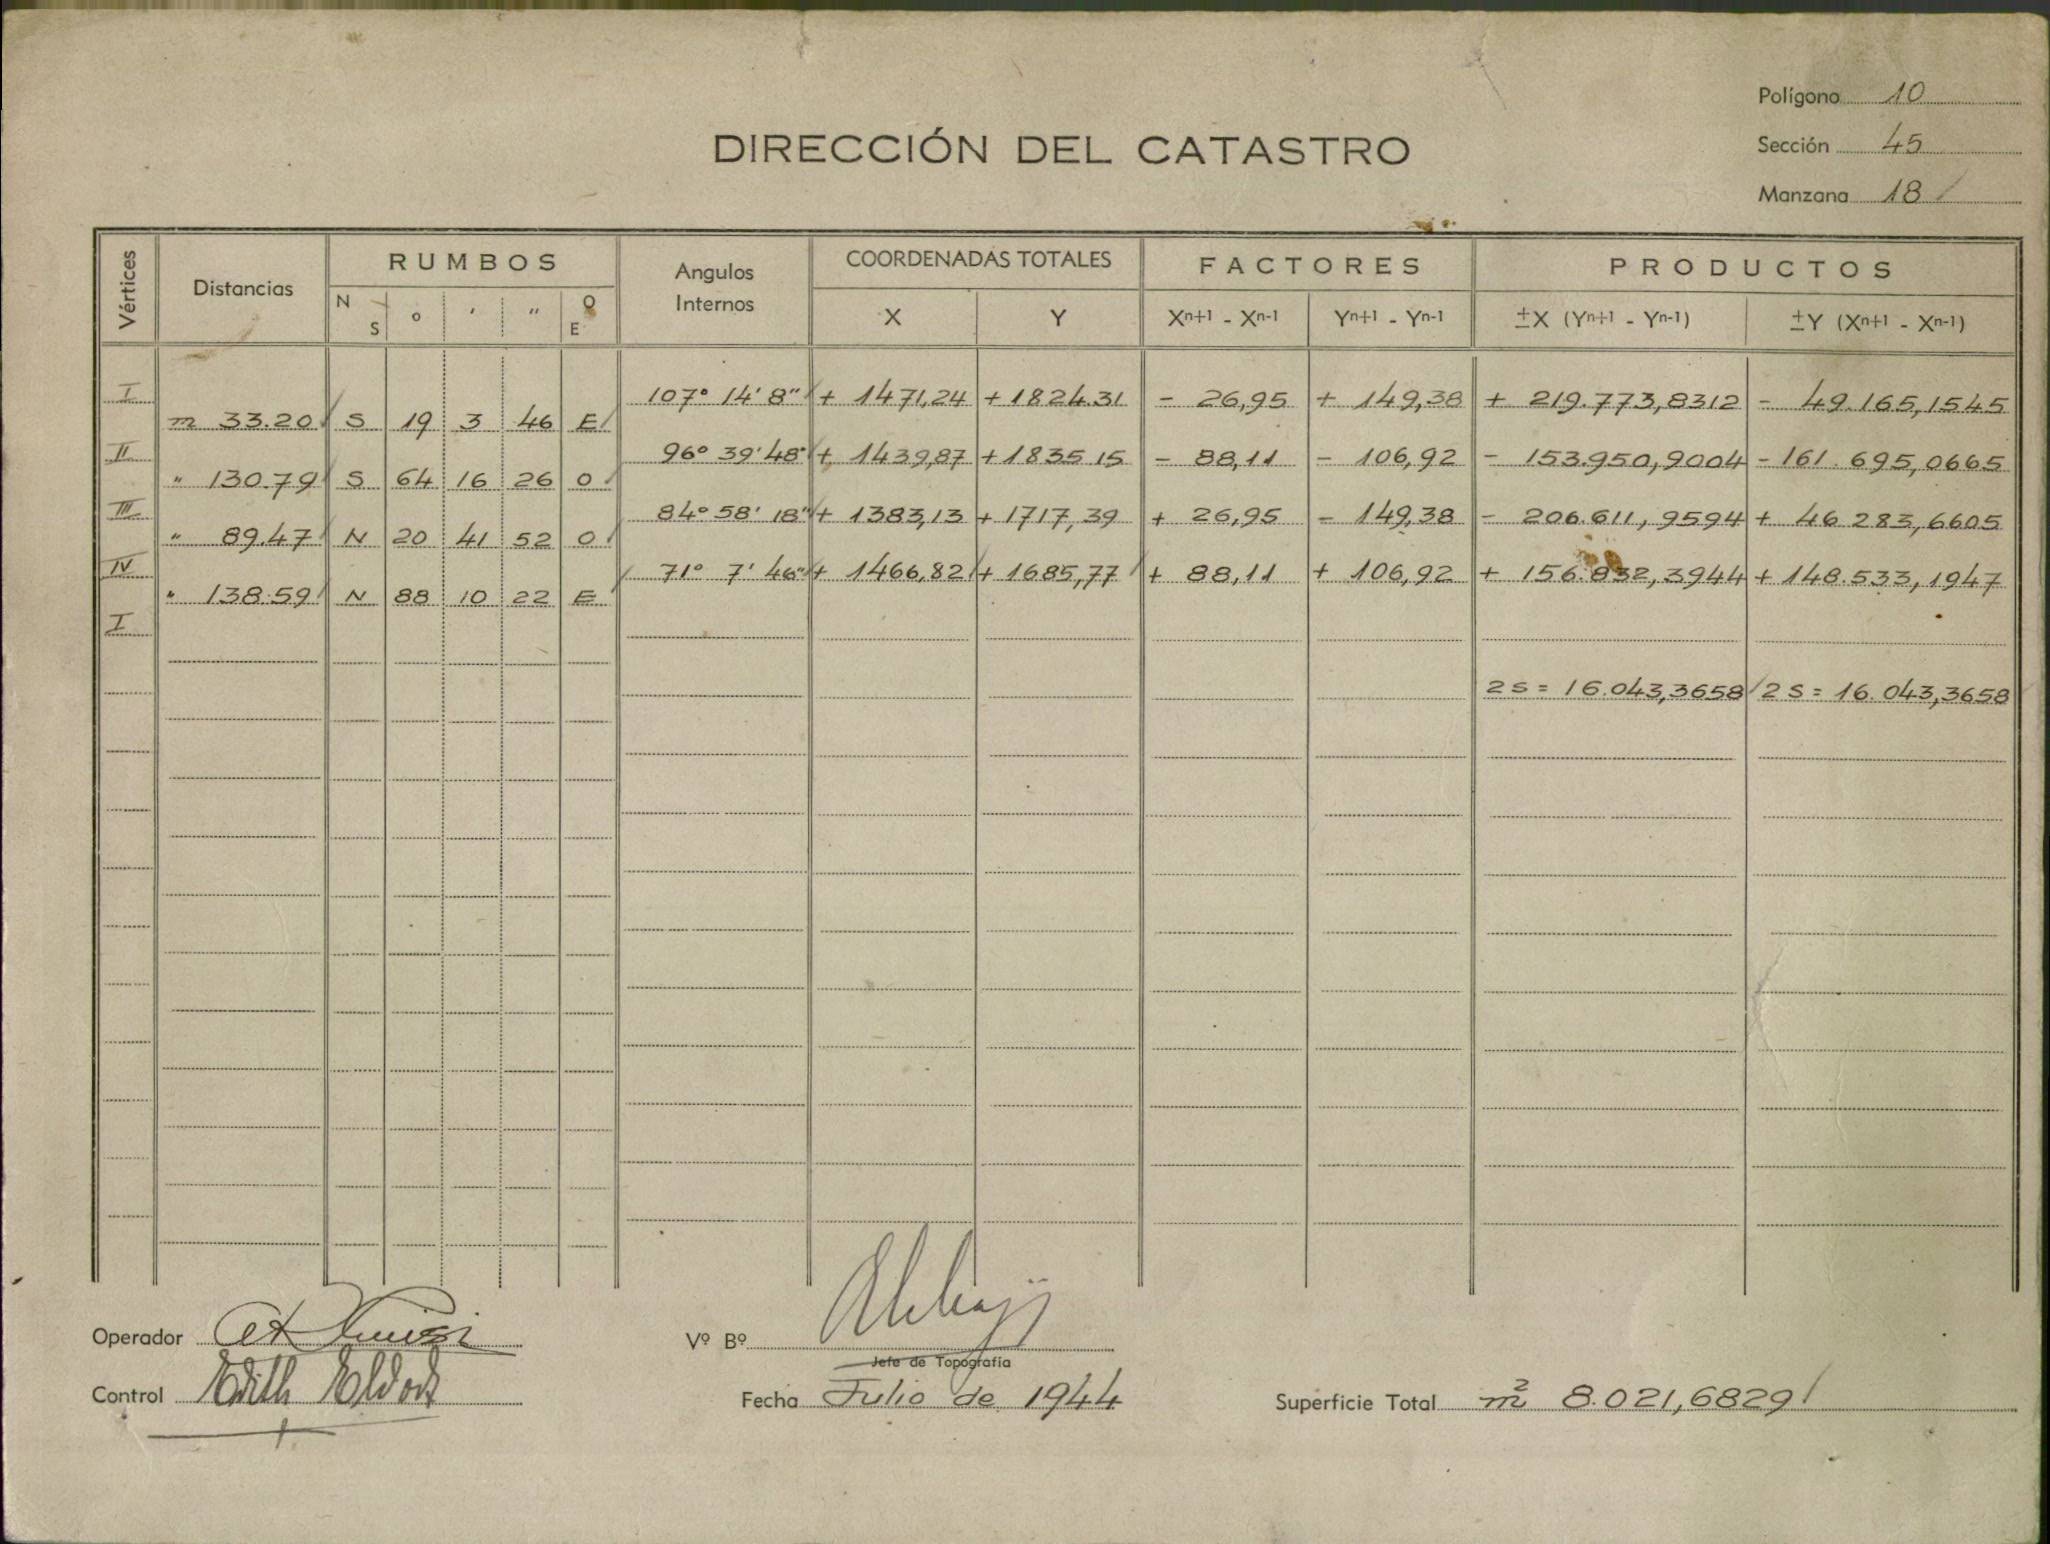 Polígono 10
DIRECCIÓN DEL CATASTRO
Sección 45
Manzana 18
Vértices Distancias RUMBOS Angulos Internos COORDENADAS TOTALES FACTORES PRODUCTOS
N S ° ′ ″ O E X Y Xn+1 - Xn-1 Yn+1 - Yn-1 ±X (Yn+1 - Yn-1) ±Y (Xn+1 - Xn-1)
I 107° 14' 8" + 1471,24 + 1824.31 - 26,95 + 149,38 + 219.773,8312 - 49.165,1545
m 33.20 S 19 3 46 E
II 96° 39' 48" + 1439,87 + 1835 15 - 88,11 - 106,92 - 153.950,9004 - 161.695,0665
" 130.79 S 64 16 26 O
III 84° 58' 18" + 1383,13 + 1717,39 + 26,95 - 149,38 - 206.611,9594 + 46 283,6605
" 89.47 N 20 41 52 O
IV 71° 7' 46" + 1466,82 + 1685,77 + 88,11 + 106,92 + 156.832,3944 + 148.533,1947
" 138.59 N 88 10 22 E
I
2 S = 16.043,3658 2 S = 16.043,3658
Operador
Vº Bº
Jefe de Topografía
Control Edith
Fecha Julio de 1944
Superficie Total m² 8.021,6829